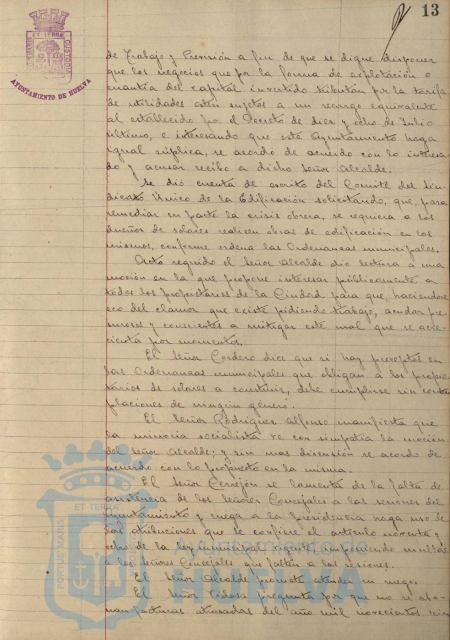 13
AYUNTAMIENTO DE HUELVA
de Trabajo y Previsión a fin de que se digne disponer
que los negocios que por la forma de explotación o
cuantía del capital invertido tributan por la tarifa
de utilidades estén sujetos a un recargo equivalente
al establecido por el Decreto de diez y ocho de Julio
último, e interesando que este Ayuntamiento haga
igual súplica, se acordó de acuerdo con lo interesa-
do y acusar recibo a dicho Señor Alcalde.
Se dió cuenta de escrito del Comité del Sin-
dicato Único de la Edificación solicitando, que, para
remediar en parte la crisis obrera, se requiera a los
dueños de solares realicen obras de edificación en los
mismos, conforme ordena las Ordenanzas municipales.
Acto seguido el Señor Alcalde dió lectura a una
moción en la que propone interesar públicamente a
todos los propietarios de la Ciudad para que, haciéndose
eco del clamor que existe pidiendo trabajo, acudan pre-
surosos y conscientes a mitigar este mal que se acre-
cienta por momentos.
El Señor Cordero dice que si hay preceptos en
las Ordenanzas municipales que obligan a los propie-
tarios de solares a construir, debe cumplirse sin contem-
placiones de ningún género.
El Señor Rodríguez Alfonso manifiesta que
la minoría socialista ve con simpatía la moción
del Señor Alcalde; y sin más discusión se acordó de
acuerdo con lo propuesto en la misma.
El Señor Cerrejón se lamenta de la falta de
asistencia de los Señores Concejales a las sesiones del
Ayuntamiento y ruega a la Presidencia haga uso de
las atribuciones que le confiere el artículo noventa y
ocho de la ley municipal vigente imponiendo multas
a los Señores Concejales que falten a las sesiones.
El Señor Alcalde promete atender su ruego.
El Señor Vidosa pregunta por que no se abo-
nan facturas atrasadas del año mil novecientos